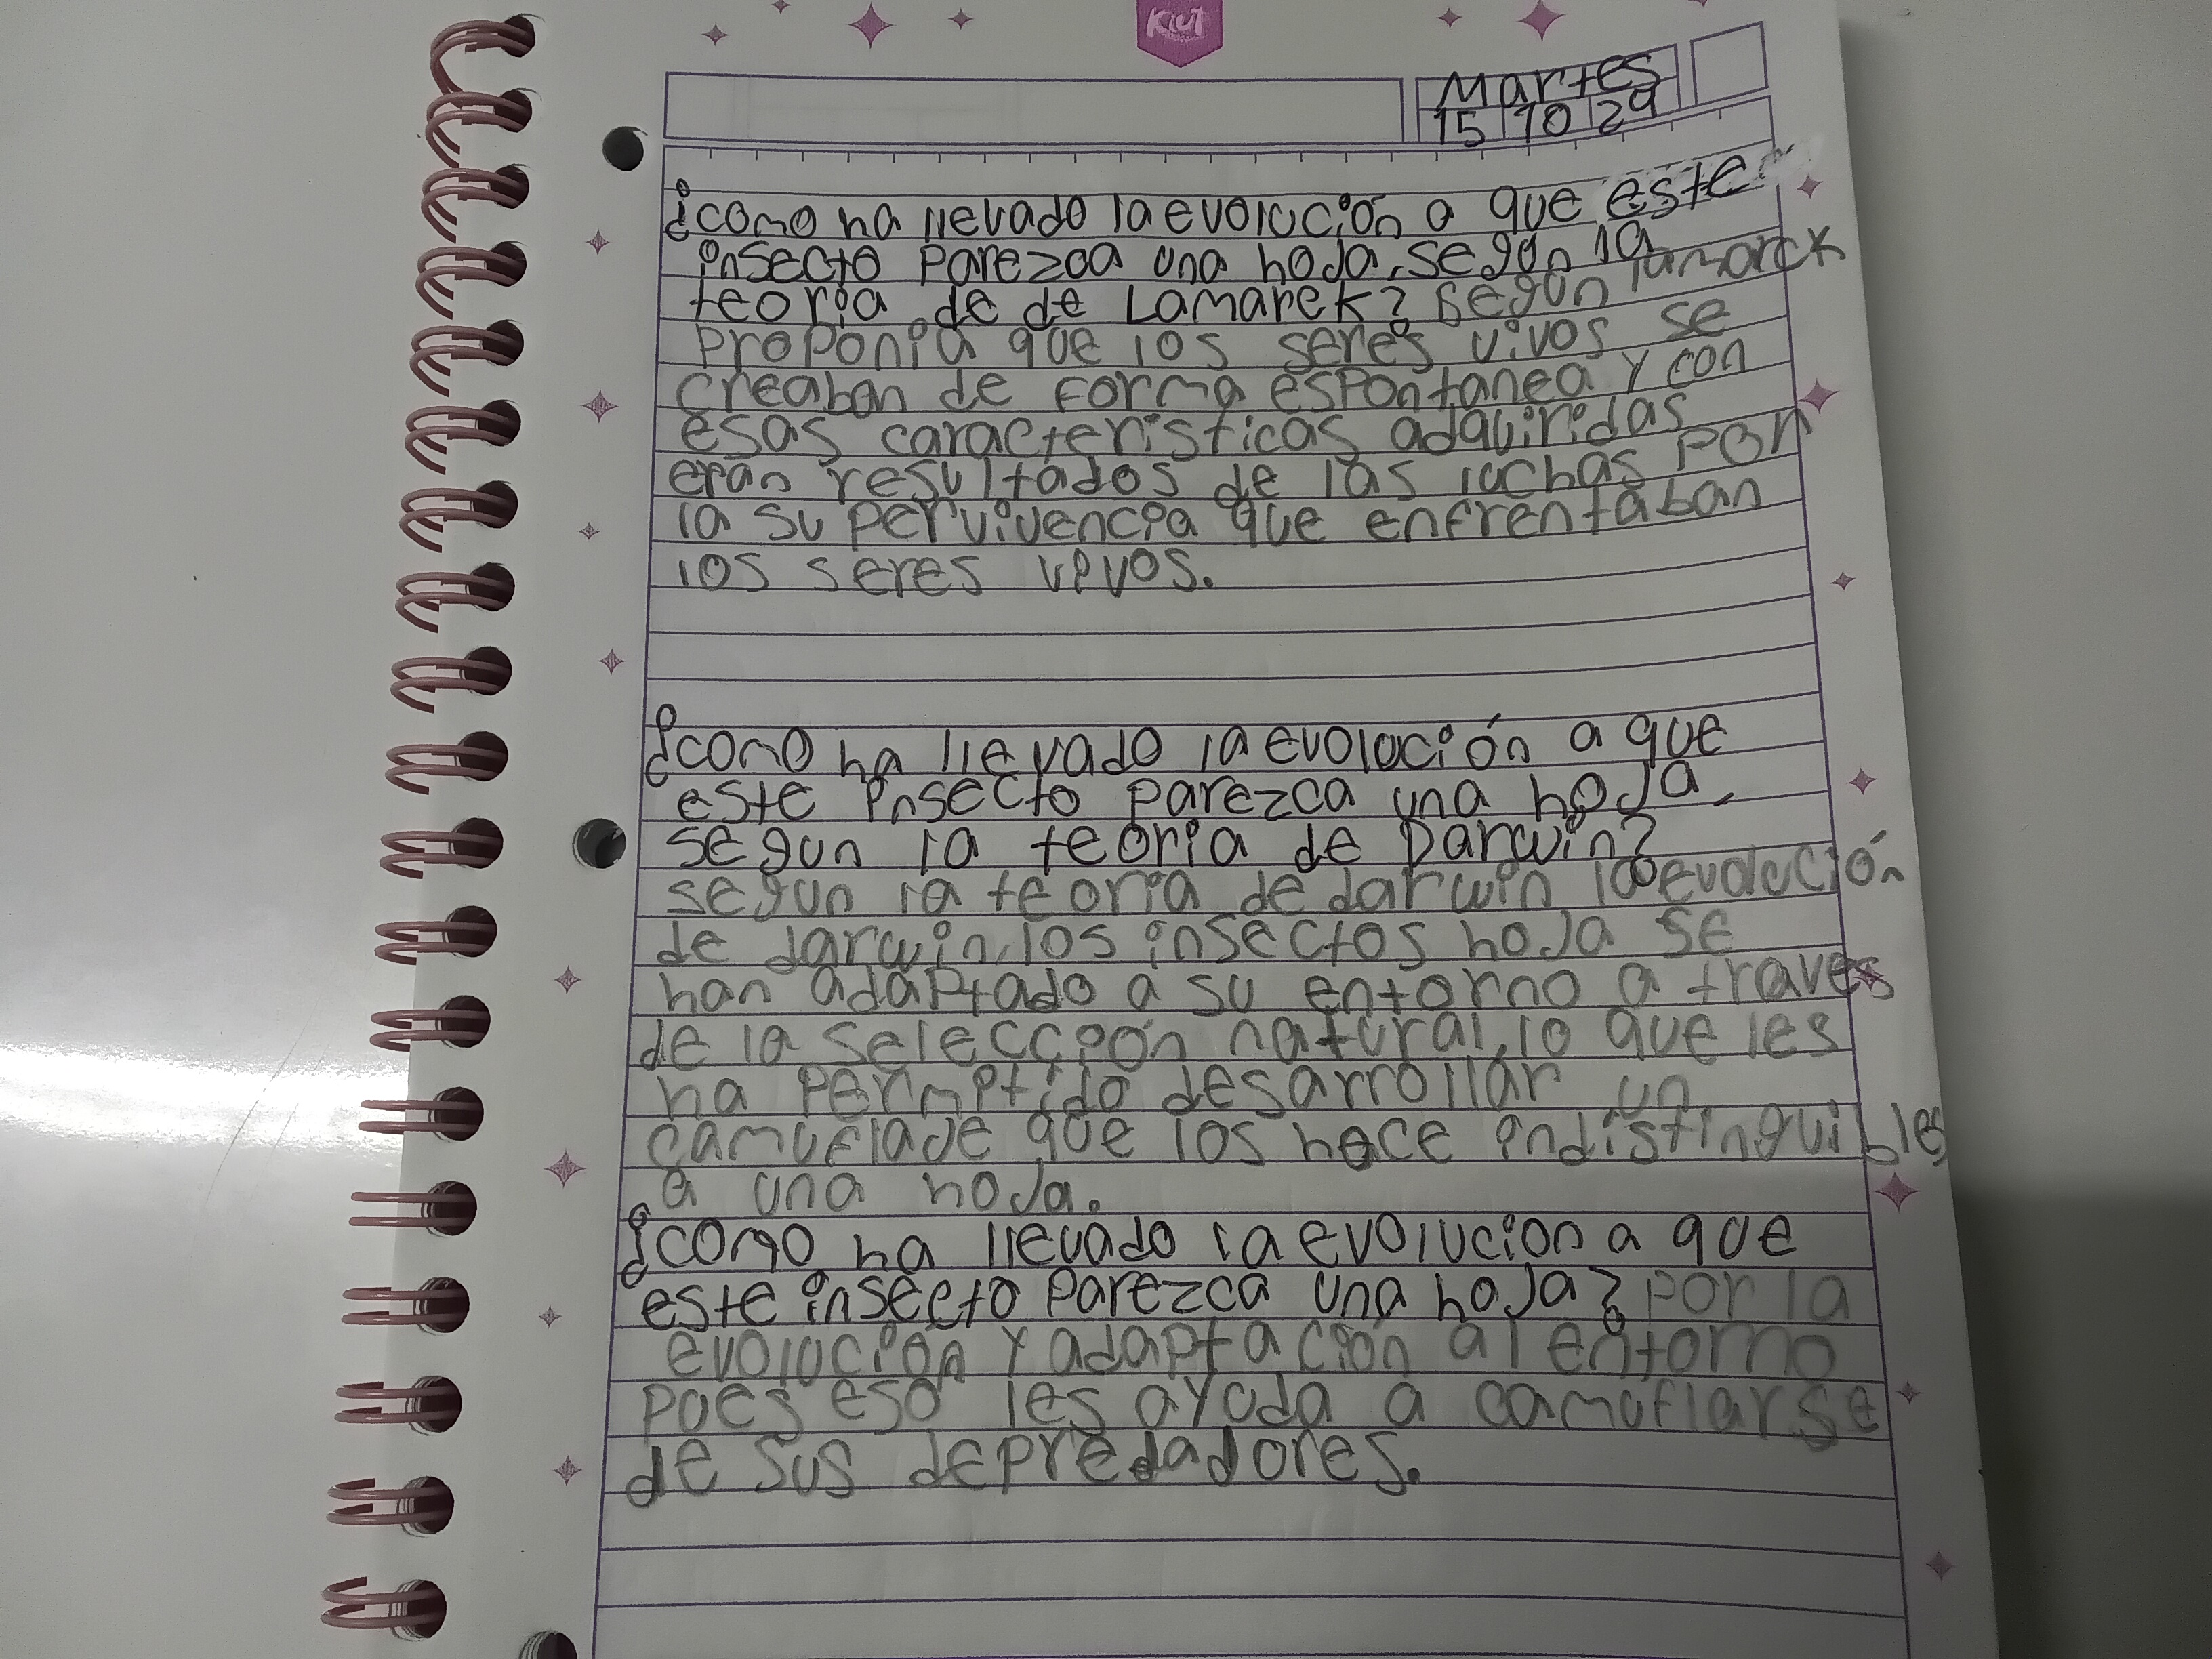 Kiut
Martes
15 10 24
¿como ha llevado la evolución a que este
insecto parezca una hoja, segun la
teoria de de Lamarck? Según lamarck
proponia que los seres vivos se
creaban de forma espontanea y con
esas caracteristicas adquiridas
eran resultados de las luchas por
la supervivencia que enfrentaban
los seres vivos.
¿como ha llevado la evolución a que
este insecto parezca una hoja,
segun la teoria de Darwin?
segun la teoria de darwin la evolución
de darwin, los insectos hoja se
han adaptado a su entorno a traves
de la selección natural, lo que les
ha permitido desarrollar un
camuflaje que los hace indistinguibles
a una hoja.
¿como ha llevado la evolucion a que
este insecto parezca una hoja? por la
evolución y adaptación al entorno
pues eso les ayuda a camuflarse
de sus depredadores.